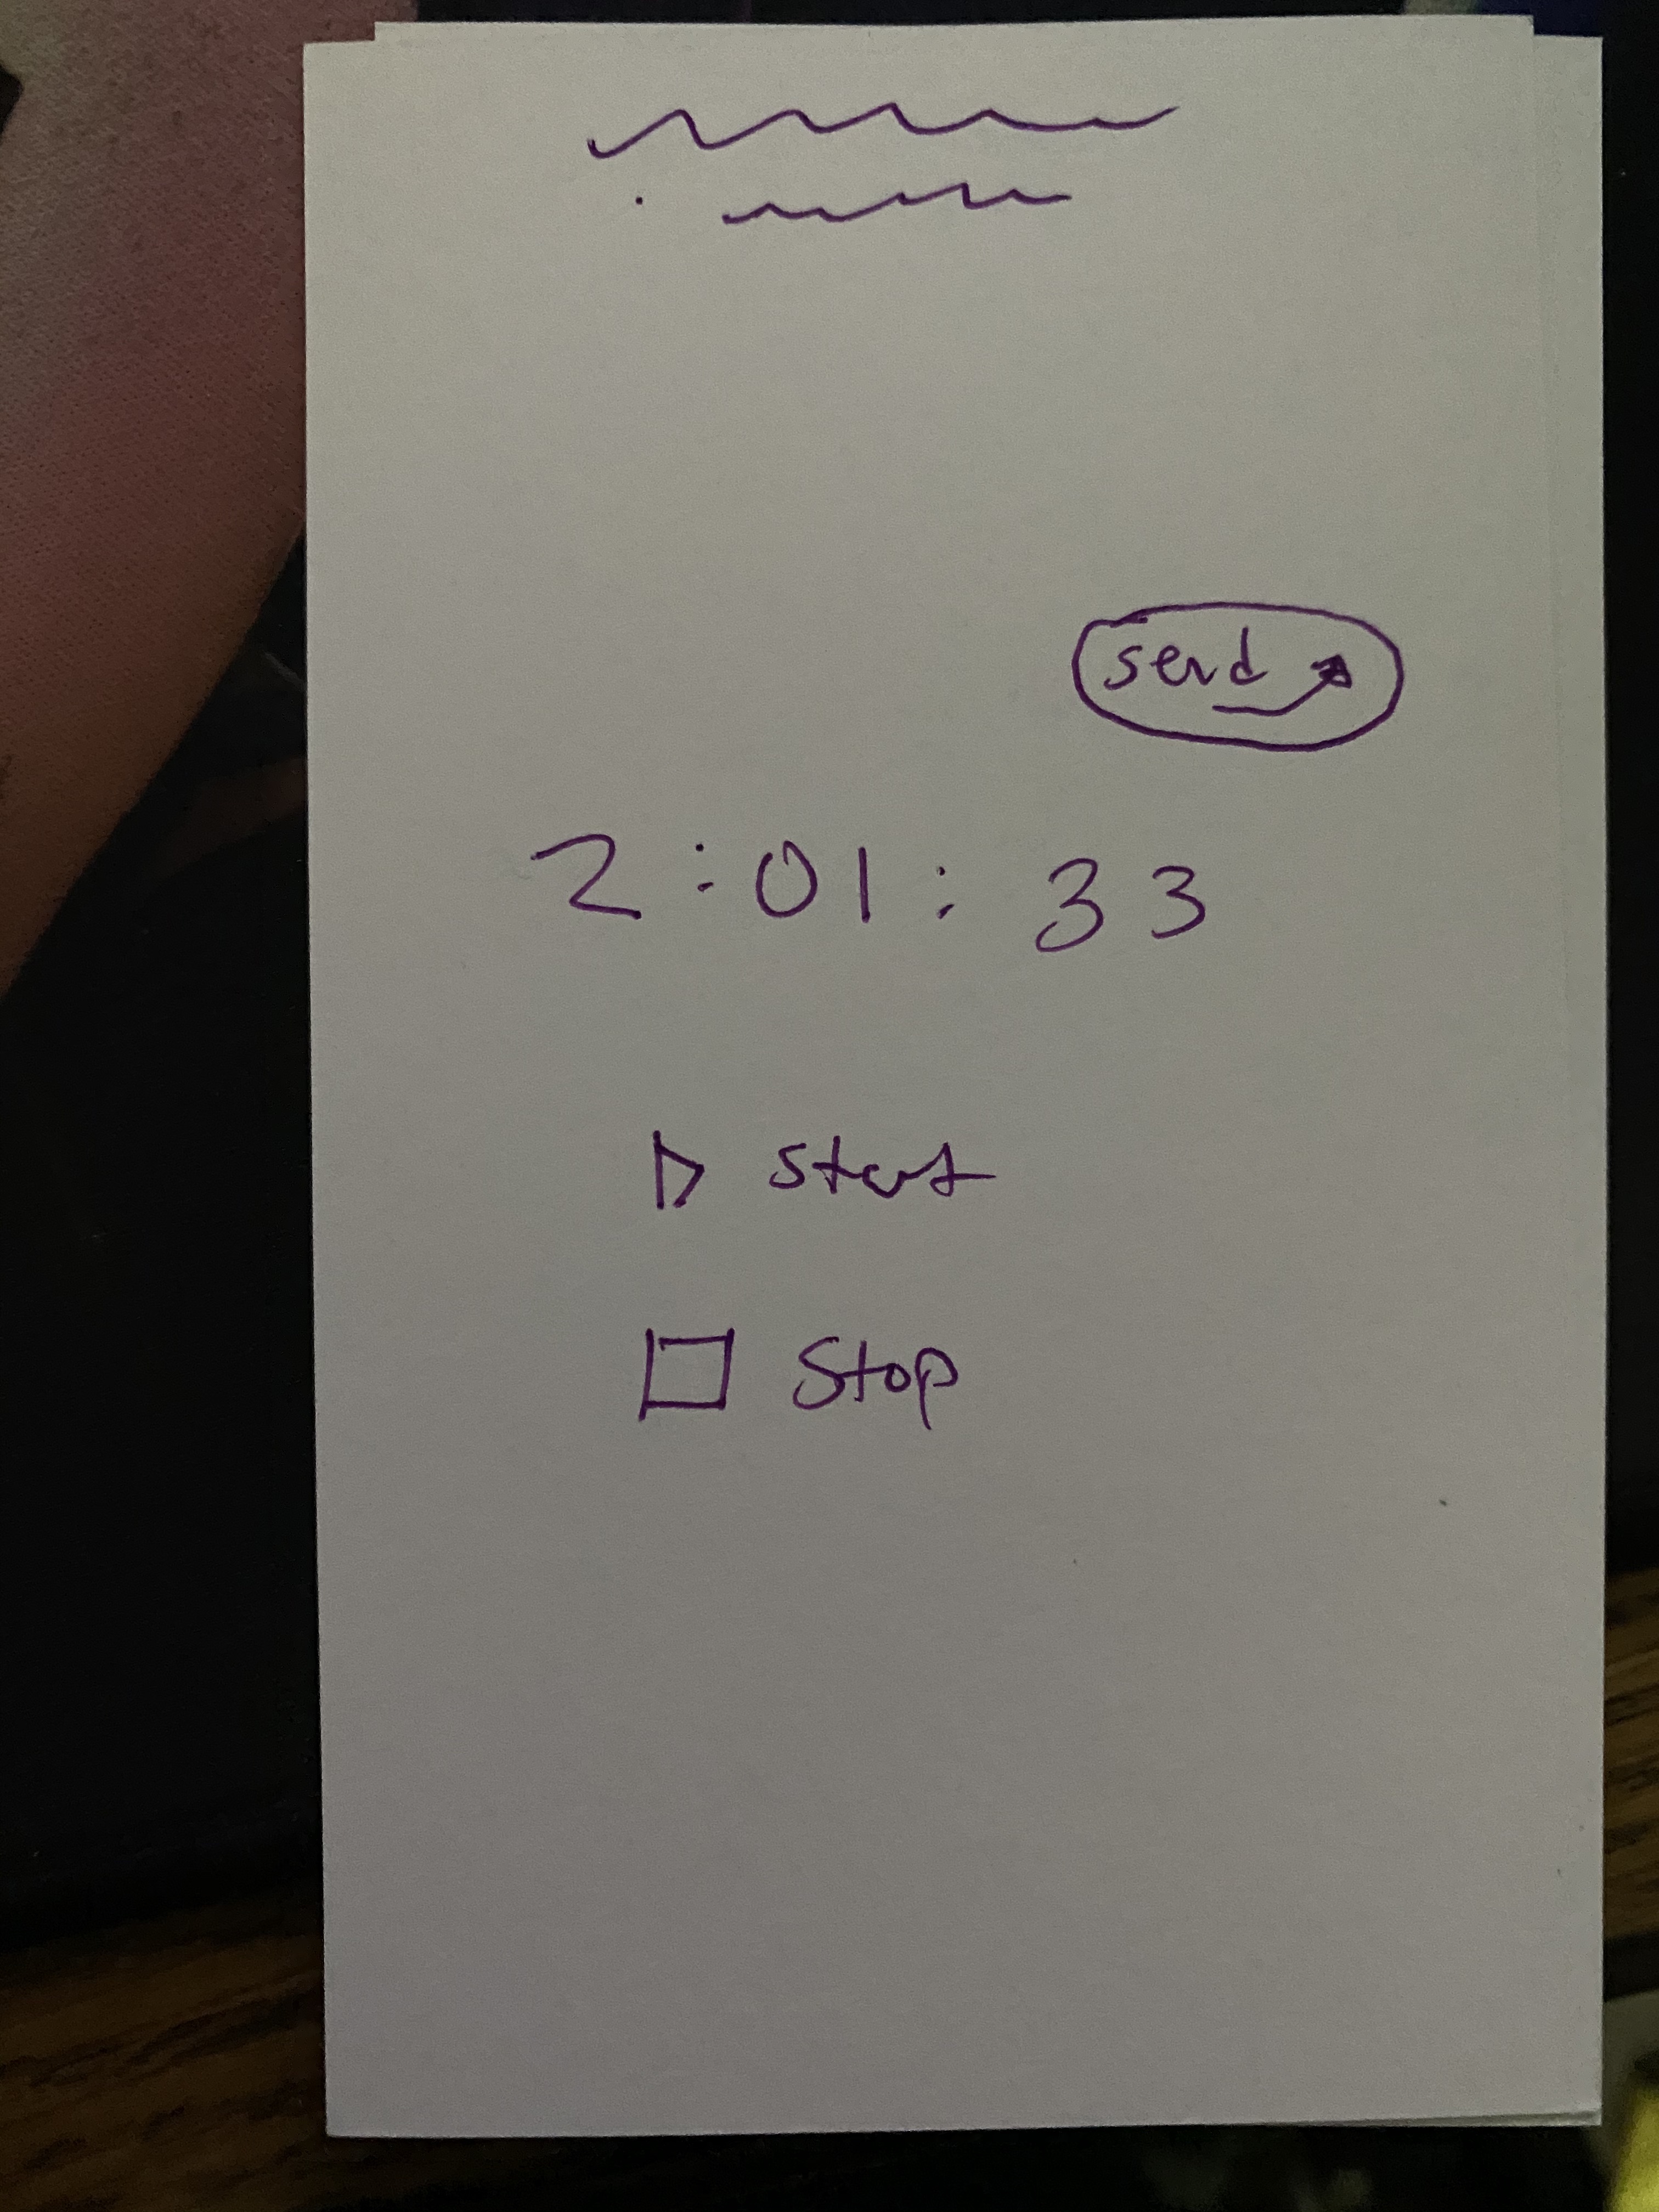 send
2:01:33
start
Stop